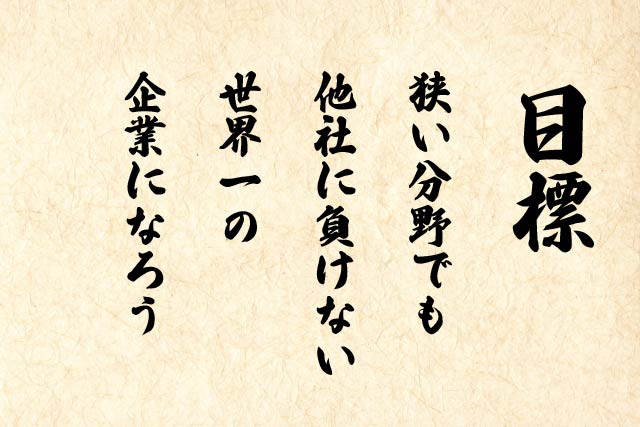 目標
狭い分野でも
他社に負けない
世界一の
企業になろう